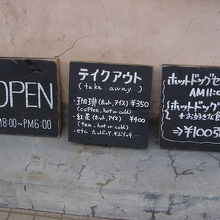 OPEN
M8:00~PM6:00
テイクアウト
(take away)
・珈琲(ホット,アイス)¥350
(coffee, hot or cold)
・紅茶(ホット,アイス)¥400
(tea, hot or cold)
・etc
ホットドッグセ
AM11:0
ホットドッグ
+お好きな飲
⇒¥100